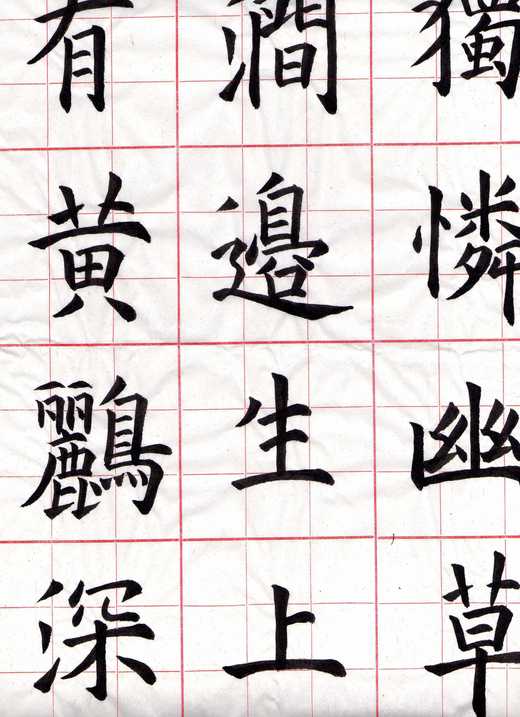 獨憐幽草
澗邊生上
有黄鸝深